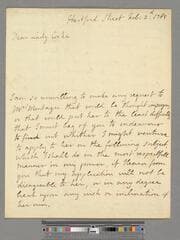 Hertford Street Feb. 2d
Dear Lady
I am so unwilling to make any request to
Mrs Montagu that could be thought improper
or that could put her to the least difficulty
that I must beg of you to endeavour
to find out whether I might venture
to apply to her on the following subject
which I shall do in the most respectful
manner in my power, if I learn from
you that my application will not be
disagreeable to her, or in any degree
break upon any wish or inclination of
her own.